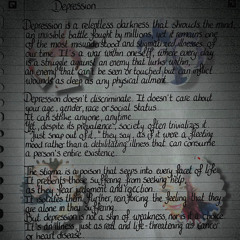 Depression
Depression is a relentless darkness that shrouds the mind,
an invisible battle fought by millions, yet remains one
of the most misunderstood and stigmatized illnesses of
our time. It's a war within oneself, where every day
is a struggle against an enemy that lurks within,
an enemy that can be seen or touched but can inflict
wounds as deep as any physical ailment.
Depression doesn't discriminate. It doesn't care about
your age, gender, race or social status.
It can strike anyone, anytime.
Yet, despite its prevalence, society often trivializes it.
"Just snap out of it," they say, as if it were a fleeting
mood rather than a debilitating illness that can consume
a person's entire existence.
The stigma is a poison that seeps into every facet of life.
It prevents those suffering from seeking help,
as they fear judgment and rejection.
It isolates them further, reinforcing the feeling that they
are alone in their suffering.
But depression is not a sign of weakness, nor is it a choice.
It's an illness just as real and life-threatening as cancer
or heart disease.